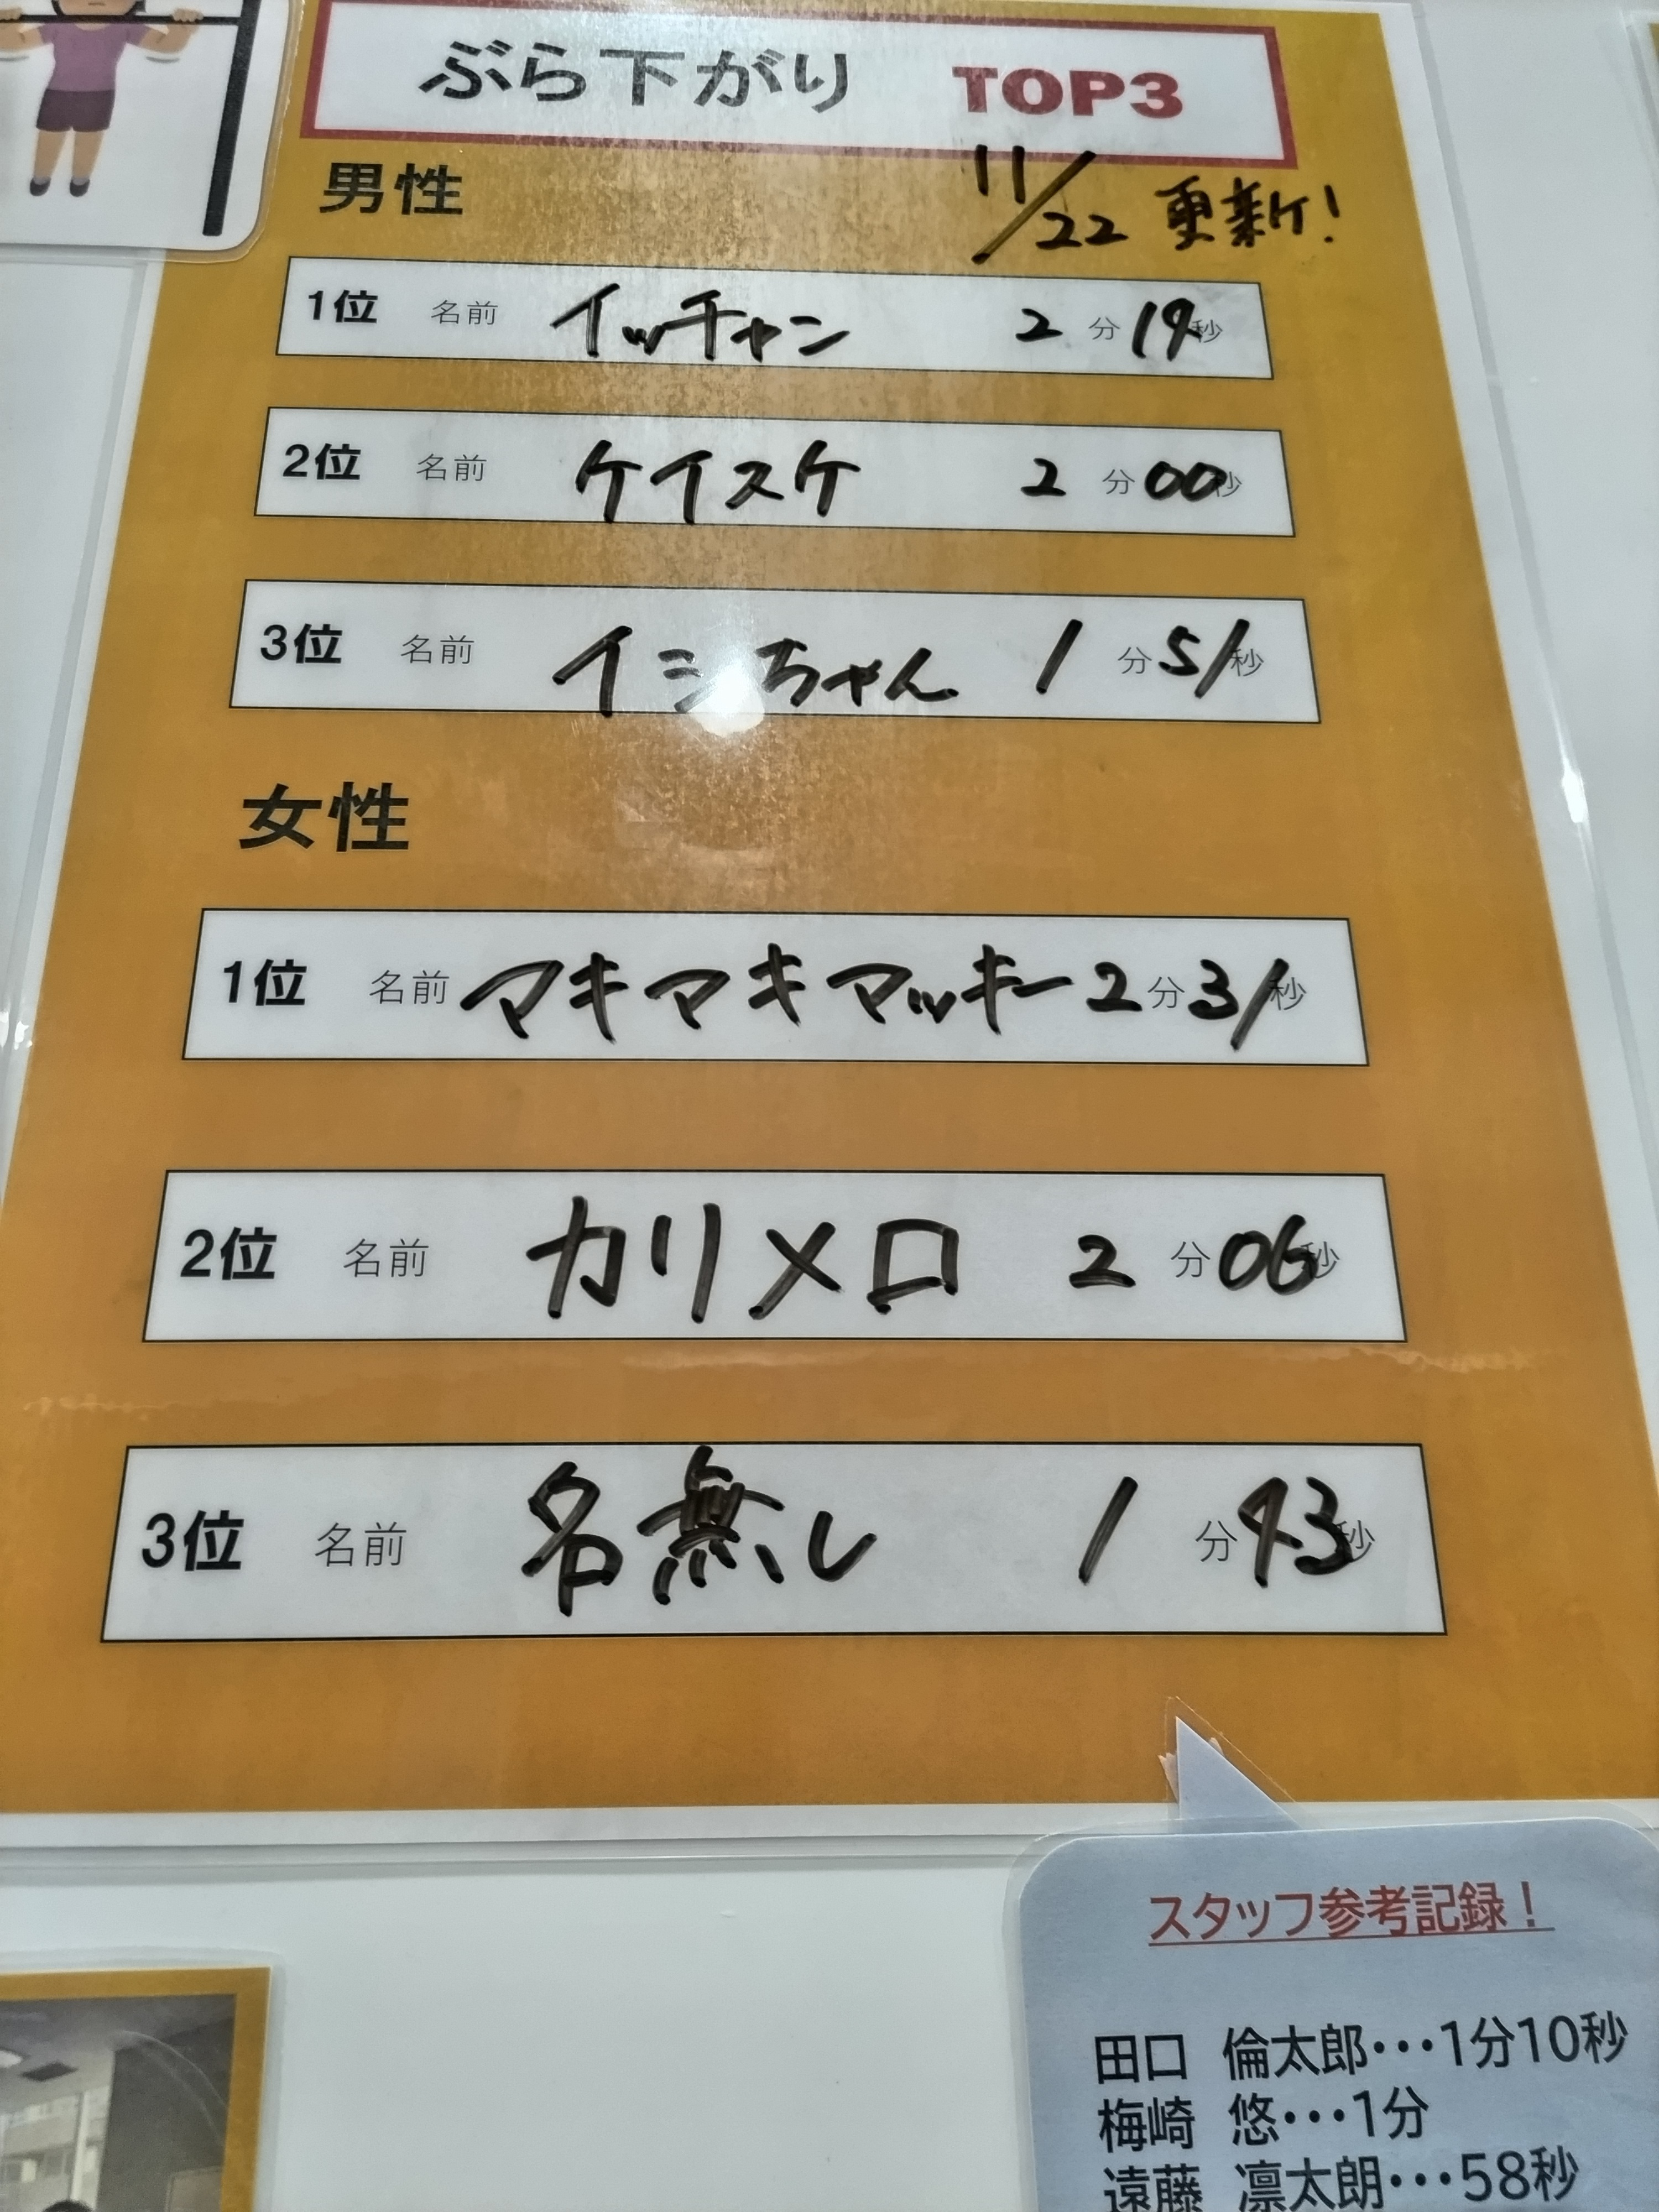 ぶら下がり TOP3
男性
11/22 更新!
1位 名前 イッチャン 2分19秒
2位 名前 ケイスケ 2分00秒
3位 名前 イシちゃん 1分51秒
女性
1位 名前 マキマキマッキー 2分31秒
2位 名前 カリメロ 2分06秒
3位 名前 名無し 1分43秒
スタッフ参考記録!
田口 倫太郎・・・1分10秒
梅崎 悠・・・1分
遠藤 凛太朗・・・58秒